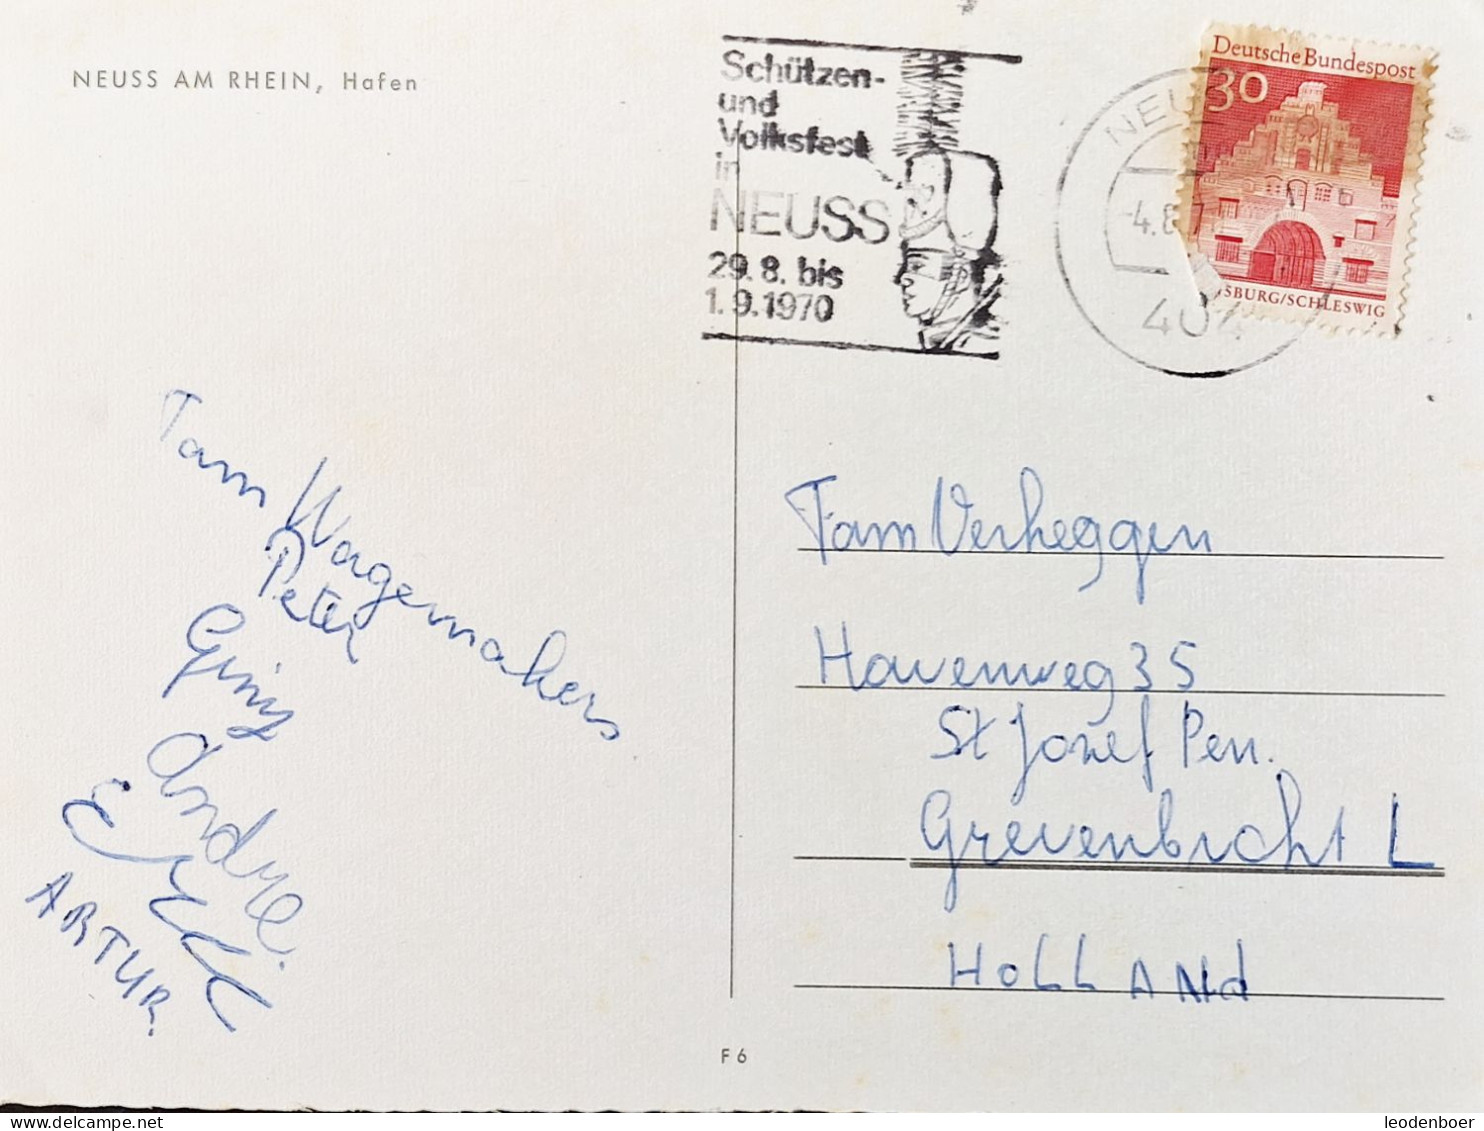 NEUSS AM RHEIN, Hafen
Schützen-
und
Volksfest
in
NEUSS
29.8. bis
1.9.1970
NEU
-4.8.7
404
Deutsche Bundespost
30
SBURG/SCHLESWIG
Fam Wagemakers
Peter
Giny
Andre.
ARTUR.
Fam Verheggen
Havenweg 35
St Jozef Pen.
Grevenbicht L
HOLLANd
F 6
leodenboer